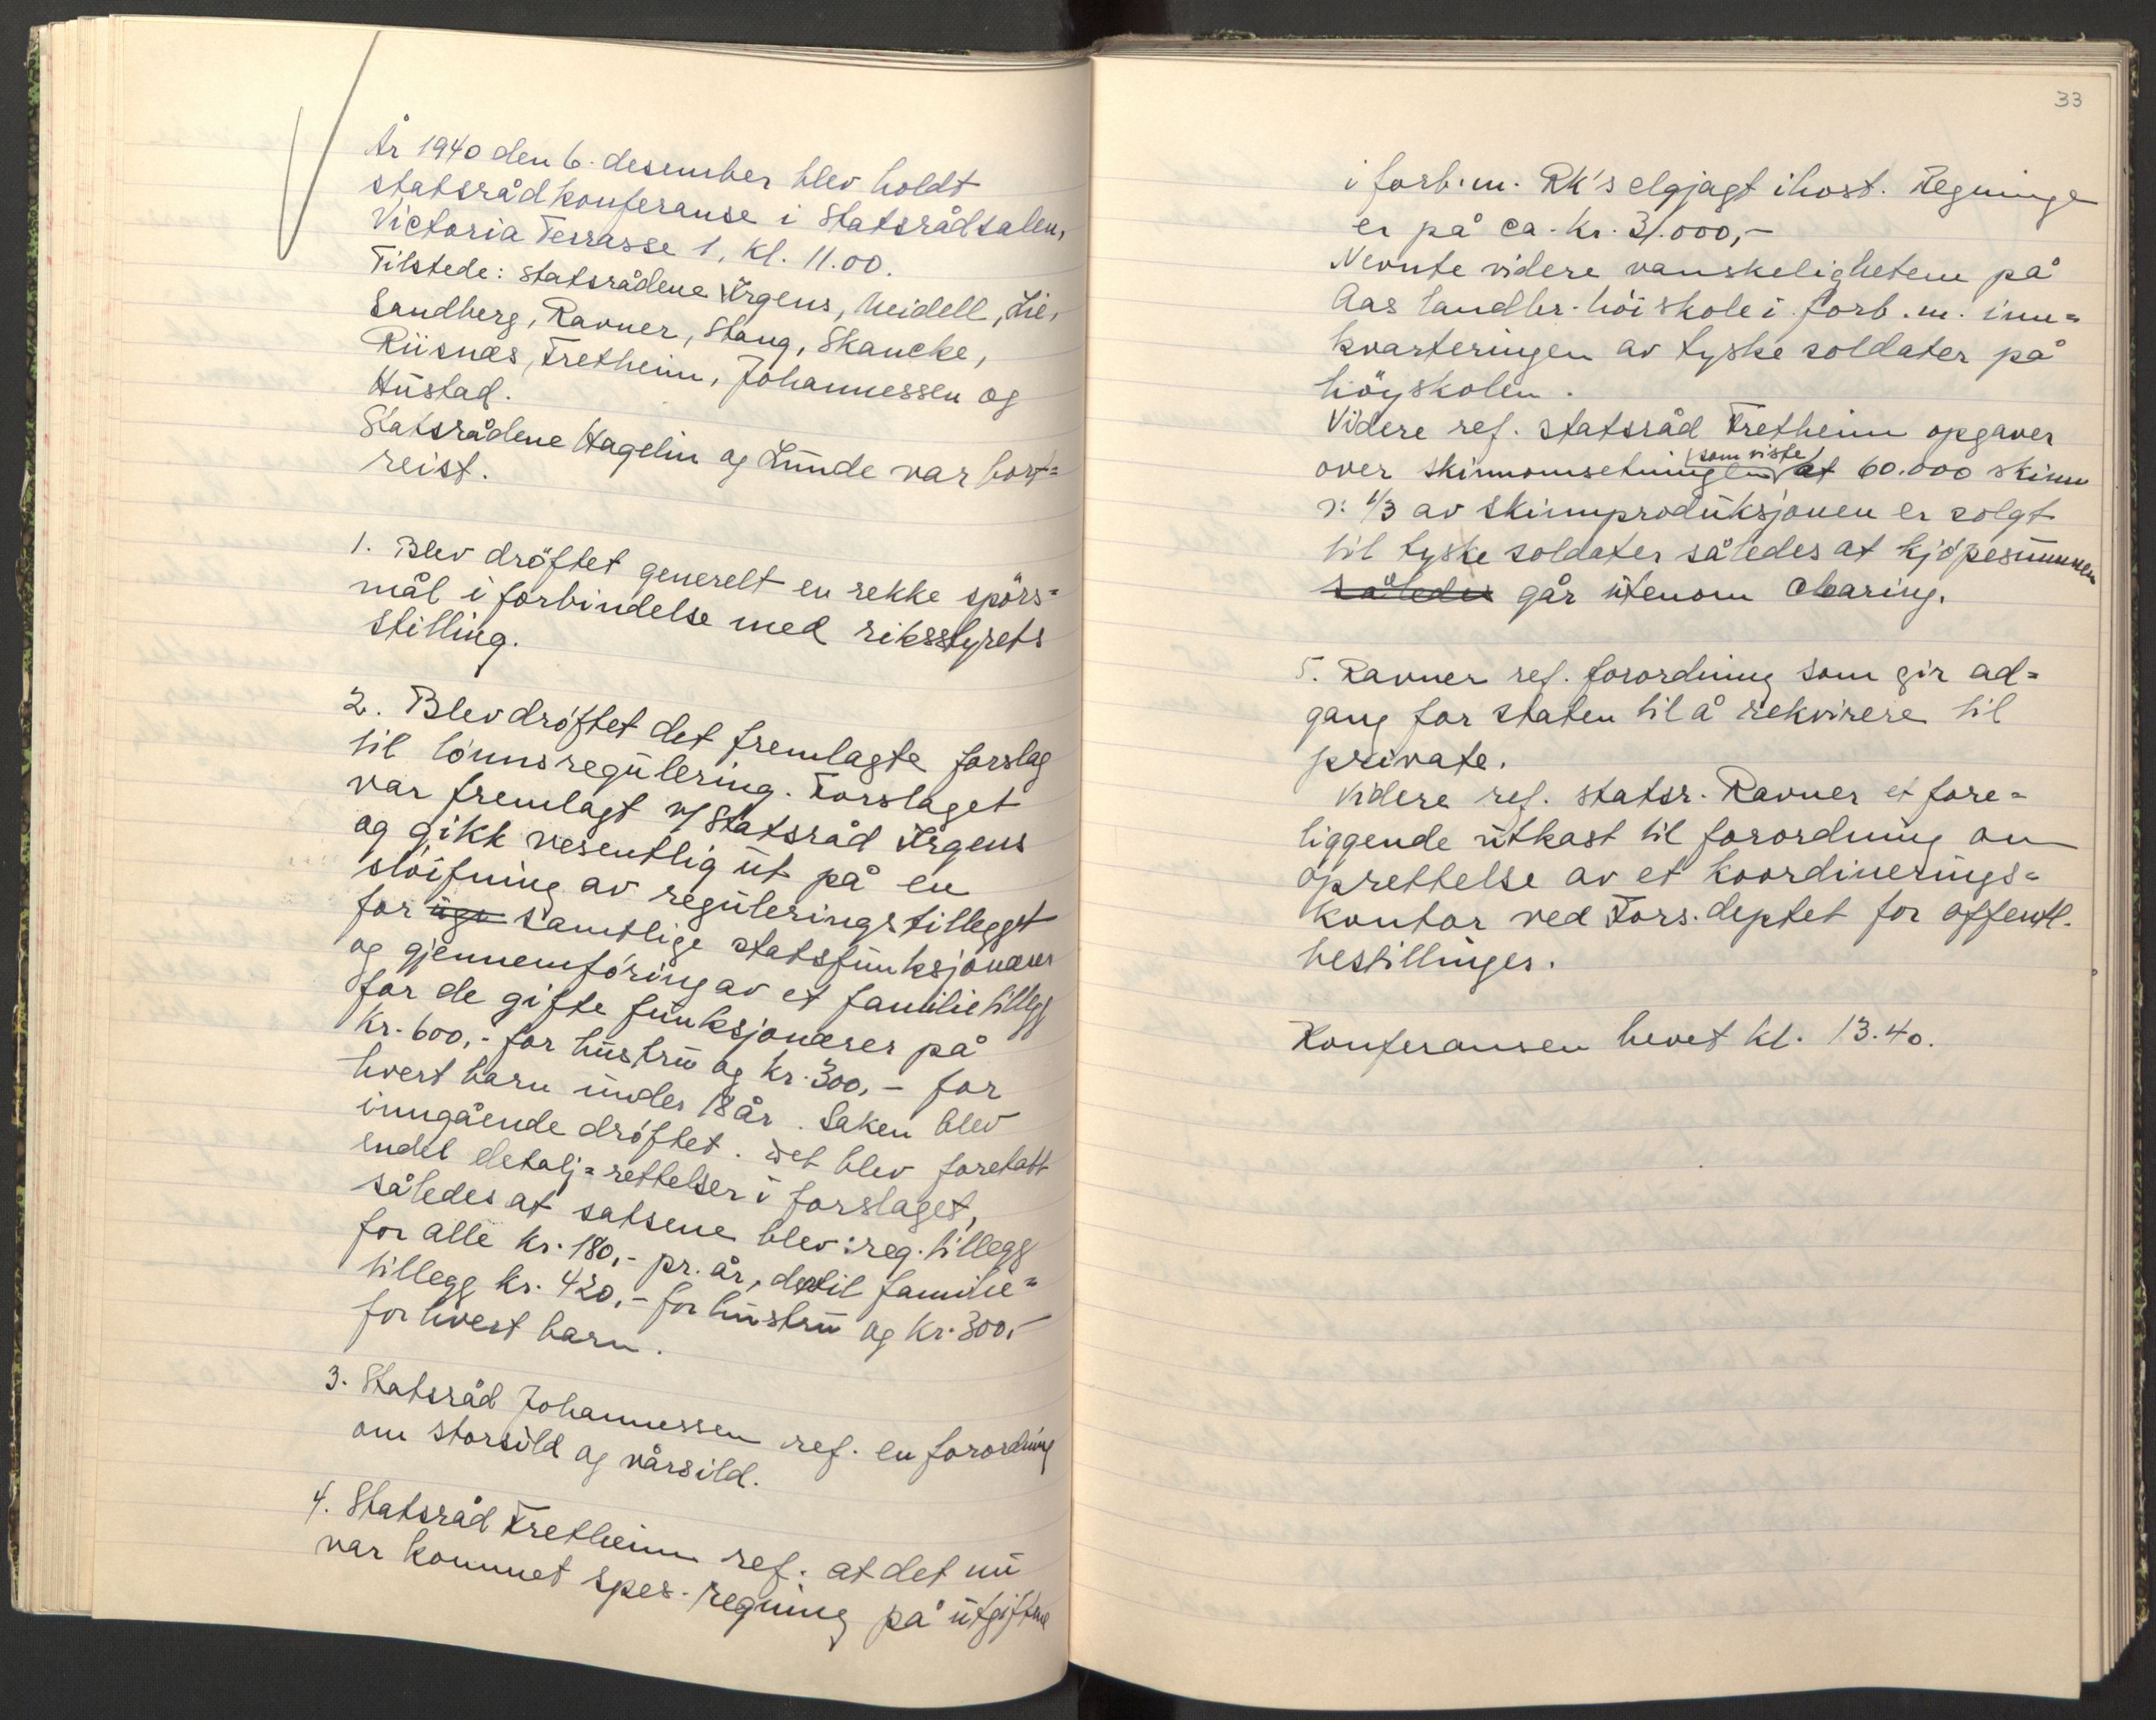 År 1940 den 6. desember blev holdt
statsrådkonferanse i Statsrådsalen,
Victoria Terrasse 1, kl. 11.00.
Tilstede: statsrådene Irgens, Meidell, Lie,
Sandberg, Ravner, Stang, Skancke,
Riisnæs, Fretheim, Johannessen og
Hustad.
Statsrådene Hagelin og Lunde var bort=
reist.
1. Blev drøftet generelt en rekke spörs=
mål i forbindelse med riksstyrets
stilling.
2. Blev drøftet det fremlagte forslag
til lönnsregulering. Forslaget
var fremlagt v/ Statsråd Irgens
og gikk vesentlig ut på en
slöifning av reguleringstillegget
for samtlige statsfunksjonærer
og gjennemföring av et familietillegg
for de gifte funksjonærer på
kr. 600,- for hustru og kr. 300,- for
hvert barn under 18 år. Saken blev
inngående dröftet. Det blev foretatt
endel detalj=rettelser i forslaget,
således at satsene blev: reg. tillegg
for alle kr. 180,- pr. år, dertil familie=
tillegg kr. 420,- for hustru og kr. 300,-
for hvert barn.
3. Statsråd Johannessen ref. en forordning
om storsild og vårsild.
4. Statsråd Fretheim ref. at det nu
var kommet spes. regning på utgiftene
33
i forb. m. RK's elgjagt i høst. Regningen
er på ca. kr. 31.000,-
Nevnte videre vanskelighetene på
Aas landbr. höiskole i forb. m. inn=
kvarteringen av tyske soldater på
höyskolen.
Videre ref. statsråd Fretheim opgaver
over skinnomsetningen som viste at 60.000 skinn
ɔ: 1/3 av skinnproduksjonen er solgt
til tyske soldater således at kjöpesummen
således går utenom Clearing.
5. Ravner ref. forordning som gir ad=
gang for staten til å rekvirere til
private.
Videre ref. statsr. Ravner et fore=
liggende utkast til forordning om
oprettelse av et koordinerings=
kontor ved Fors. deptet for offentl.
bestillinger.
Konferansen hevet kl. 13.40.